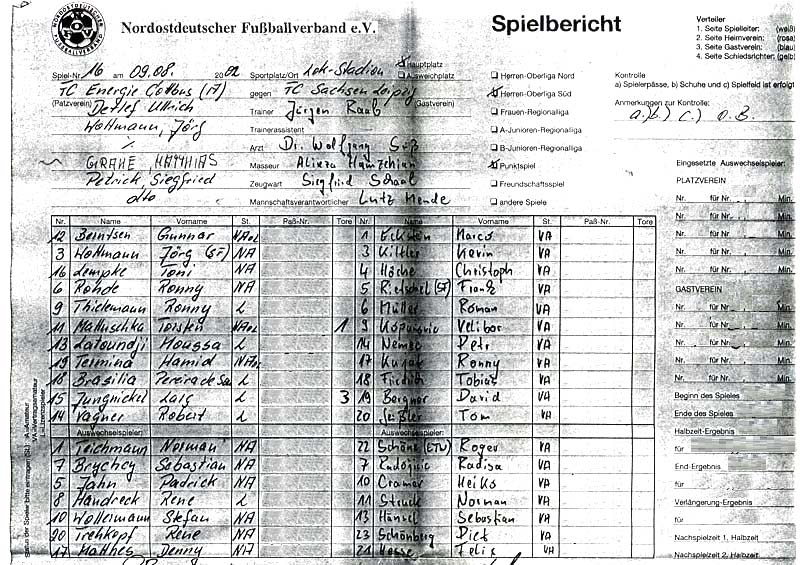 NORDOSTDEUTSCHER FUSSBALLVERBAND
NOFV
Nordostdeutscher Fußballverband e.V.
Spielbericht
Verteiler
1. Seite Spielleiter: (weiß)
2. Seite Heimverein: (rosa)
3. Seite Gastverein: (blau)
4. Seite Schiedsrichter: (gelb)
Spiel-Nr. 16 am 09.08. 2002 Sportplatz/Ort Lok-Stadion Hauptplatz
Ausweichplatz
FC Energie Cottbus (A) gegen FC Sachsen Leipzig
(Platzverein) (Gastverein)
Detlef Ullrich Trainer Jürgen Raab
Wottmann, Jörg Trainerassistent
Arzt Dr. Wolfgang
GRAHE, MATTHIAS Masseur Alireza
Petrick, Siegfried Zeugwart Siegfried Schaal
dito Mannschaftsverantwortlicher Lutz Mende
Herren-Oberliga Nord
Herren-Oberliga Süd
Frauen-Regionalliga
A-Junioren-Regionalliga
B-Junioren-Regionalliga
Punktspiel
Freundschaftsspiel
andere Spiele
Kontrolle
a) Spielerpässe, b) Schuhe und c) Spielfeld ist erfolgt
Anmerkungen zur Kontrolle:
a.) b.) c.) o.B.
Eingesetzte Auswechselspieler:
PLATZVEREIN
Nr. für Nr. Min.
Nr. für Nr. Min.
Nr. für Nr. Min.
Nr. für Nr. Min.
Nr. für Nr. Min.
GASTVEREIN
Nr. für Nr. Min.
Nr. für Nr. Min.
Nr. für Nr. Min.
Nr. für Nr. Min.
Beginn des Spieles
Ende des Spieles
Halbzeit-Ergebnis
für
End-Ergebnis
für
Verlängerung-Ergebnis
für
Nachspielzeit 1. Halbzeit
Nachspielzeit 2. Halbzeit
Nr. Name Vorname St. Paß-Nr. Tore Nr. Name Vorname St. Paß-Nr. Tore
12 Berntsen Gunnar 1 Marco VA
3 Wottmann Jörg (SF) NA 3 Kittler Kevin VA
16 Lempke Toni NA 4 Höche Christoph VA
6 Rohde Ronny NA 5 Rietschel (SF) Frank VA
9 Thielemann Ronny L 6 Müller Roman VA
11 Mattuschka Torsten 1 9 Velibor VA
13 Latoundji Moussa L 14 Nemec Petr VA
19 Termina Hamid 17 Kujat Ronny VA
18 Brasilia Pereira de Sa L 18 Friedrich Tobias VA
15 Jungnickel Lars L 3 19 Bergner David VA
14 Vagner Robert L 20 Tom VA
Auswechselspieler: Auswechselspieler:
1 Teichmann Norman NA 22 Schöne (ETW) Roger VA
7 Brychcy Sebastian NA 7 Radisa VA
5 Jahn Padrick NA 10 Cramer Heiko VA
8 Handreck Rene L 11 Struck Norman VA
10 Wollermann Stefan NA 13 Hänsel Sebastian VA
20 Trehkopf Rene NA 23 Schönberg Piet VA
17 Matthes Denny NA 21 Hesse Felix VA